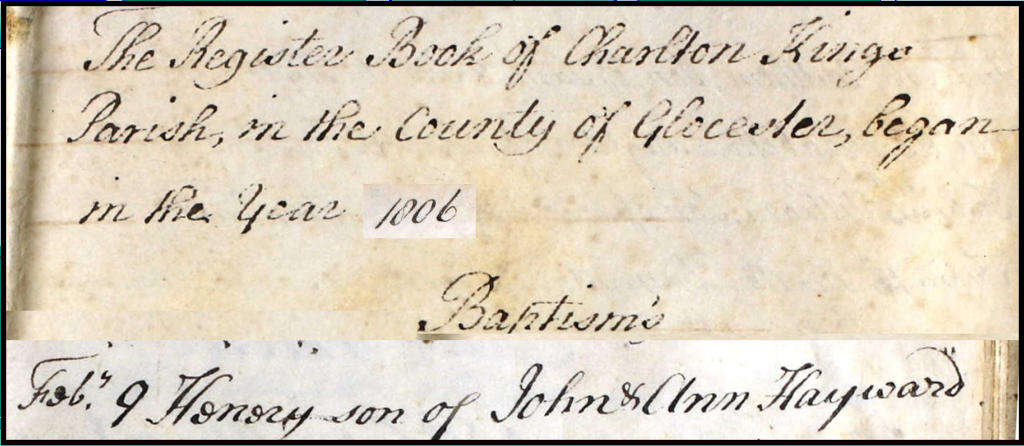 The Register Book of Charlton Kings
Parish, in the County of Glocester, began
in the Year 1806
Baptism's
Feb.ʸ 9 Henery son of John & Ann Hayward